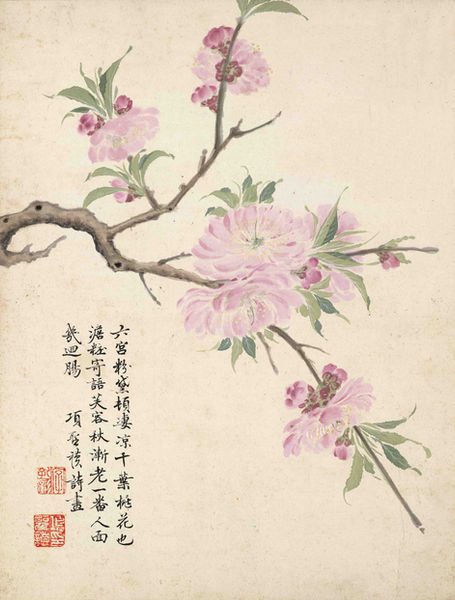 六宮粉黛頓淒凉千葉桃花也
澹粧寄語芙容秋漸老一番人面
幾迴腸
項聖謨詩畫